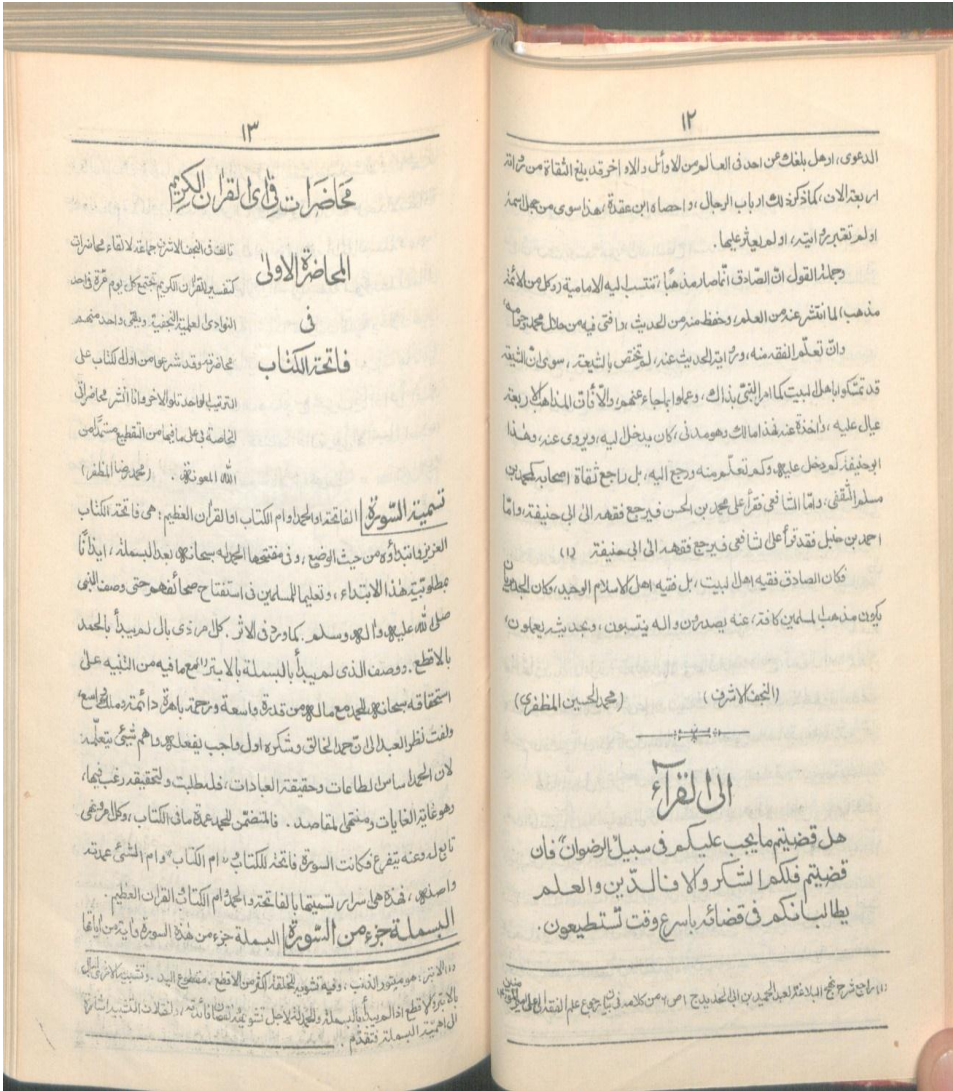 ١٢
الدعوى، او هل بلغك عن احد فى العالم من الاوائل والاواخر قد بلغ الثقاة من رواته
اربعة الاف، كما ذكر ذلك ارباب الرجال، واحصاه ابن عقدة، هذا سوى من جهل اسمه
او لم تقع روايته، او لم يعثر عليها.
وجملة القول ان الصادق انما صار مذهباً تنتسب اليه الامامية دون كل من الائمة
مذهب، لما انتشر عنه من العلم، وحفظ منه من الحديث، وافتى فيه من حلال محمد وحرامه،
وان تعلم الفقه منه، ورواية الحديث عنه، لم تختص بالشيعة، سوى ان الشيعة
قد تمسكوا باهل البيت كما امر النبى بذاك، وعملوا بما جاء عنهم، والا فان المذاهب الاربعة
عيال عليه، وآخذة عنه فهذا مالك وهو مدنى، كان يدخل اليه، ويروى عنه، وهذا
ابو حنيفة كم دخل عليه وكم تعلم منه ورجع اليه، بل راجع ثقاة اصحابه كمحمد بن
مسلم الثقفى، واما الشافعى فقرأ على محمد بن الحسن فيرجع فقهه الى ابى حنيفة، واما
احمد بن حنبل فقد قرأ على الشافعى فيرجع فقهه الى ابى حنيفة (١)
فكان الصادق فقيه اهل البيت، بل فقيه اهل الاسلام الوحيد، وكان الجدير بان
يكون مذهب المسلمين كافة، عنه يصدرون واليه ينتسبون، وبحديثه يعملون،
(النجف الاشرف) (محمد الحسين المظفرى)
الى القرآء
هل قضيتم ما يجب عليكم فى سبيل "الرضوان" فان
قضيتم فلكم الشكر والا فالدين والعلم
يطالبانكم فى قضائه باسرع وقت تستطيعون.
(١) راجع شرح نهج البلاغة لعبد الحميد بن ابى الحديد ج ١ ص ٦ من كلامه فى رجوع علم الفقه
١٣
محاضرات فى آى القران الكريم
المحاضرة الاولى
فى
فاتحة الكتاب
تالفت فى النجف الاشرف جماعة لالقاء محاضرات
كتفسير للقران الكريم تجتمع كل يوم مرة فى احد
النوادى العلمية النجفية. ويلقى واحد منهم
محاضرته وقد شرعوا من اول الكتاب على
الترتيب الواحد تلو الاخر وانا انشر محاضراتى
الخاصة فى على ما فيها من التقطيع مستمداً من
الله المعونة. (محمد رضا المظفر)
تسمية السورة الفاتحة والحمد وام الكتاب او القران العظيم: هى فاتحة الكتاب
العزيز وابتداؤه من حيث الوضع، وفى مفتتحها الحمد له سبحانه بعد البسملة، ايذاناً
بمطلوبية هذا الابتداء، وتعليما للمسلمين فى استفتاح صحائفهم حتى وصف النبى
صلى الله عليه واله وسلم. كما ورد فى الاثر. كل امر ذى بال لم يبدأ بالحمد
بالاقطع. ووصف الذى لم يبدأ بالبسملة بالابتر(١) مع ما فيه من التنبيه على
استحقاقه سبحانه للحمد مع ماله من قدرة واسعة ورحمة باهرة دائمة وملك واسع،
ولفت نظر العبد الى ان حمد الخالق وشكره اول واجب يفعله واهم شئ يتعلمه
لان الحمد اساس الطاعات وحقيقة العبادات، فله طلبت ولتحقيقه رغب فيها،
وهو غاية الغايات ومنتهى المقاصد. فالمتضمن للحمد عمدة ما فى الكتاب، وكل امر ونهى
تابع له وعنه يتفرع فكانت السورة فاتحة للكتاب و"ام الكتاب" وام الشئ عمدته
واصله، فهذه هى سر تسميتها بالفاتحة والحمد وام الكتاب القران العظيم
البسملة جزء من السورة البسملة جزء من هذه السورة واية من اياتها
(١) الابتر: هو مبتور الذنب، وفيه تشويه للخلقة اكثر من الاقطع. مقطوع اليد. وتشبيه الامر ذى البال
بالابتر والاقطع اذا لم يبدأ بالبسملة والحمد له لاجل تشويهه نقصان فائدته، والتفات التشبيه اشارة
الى اهمية البسملة فتقدم.